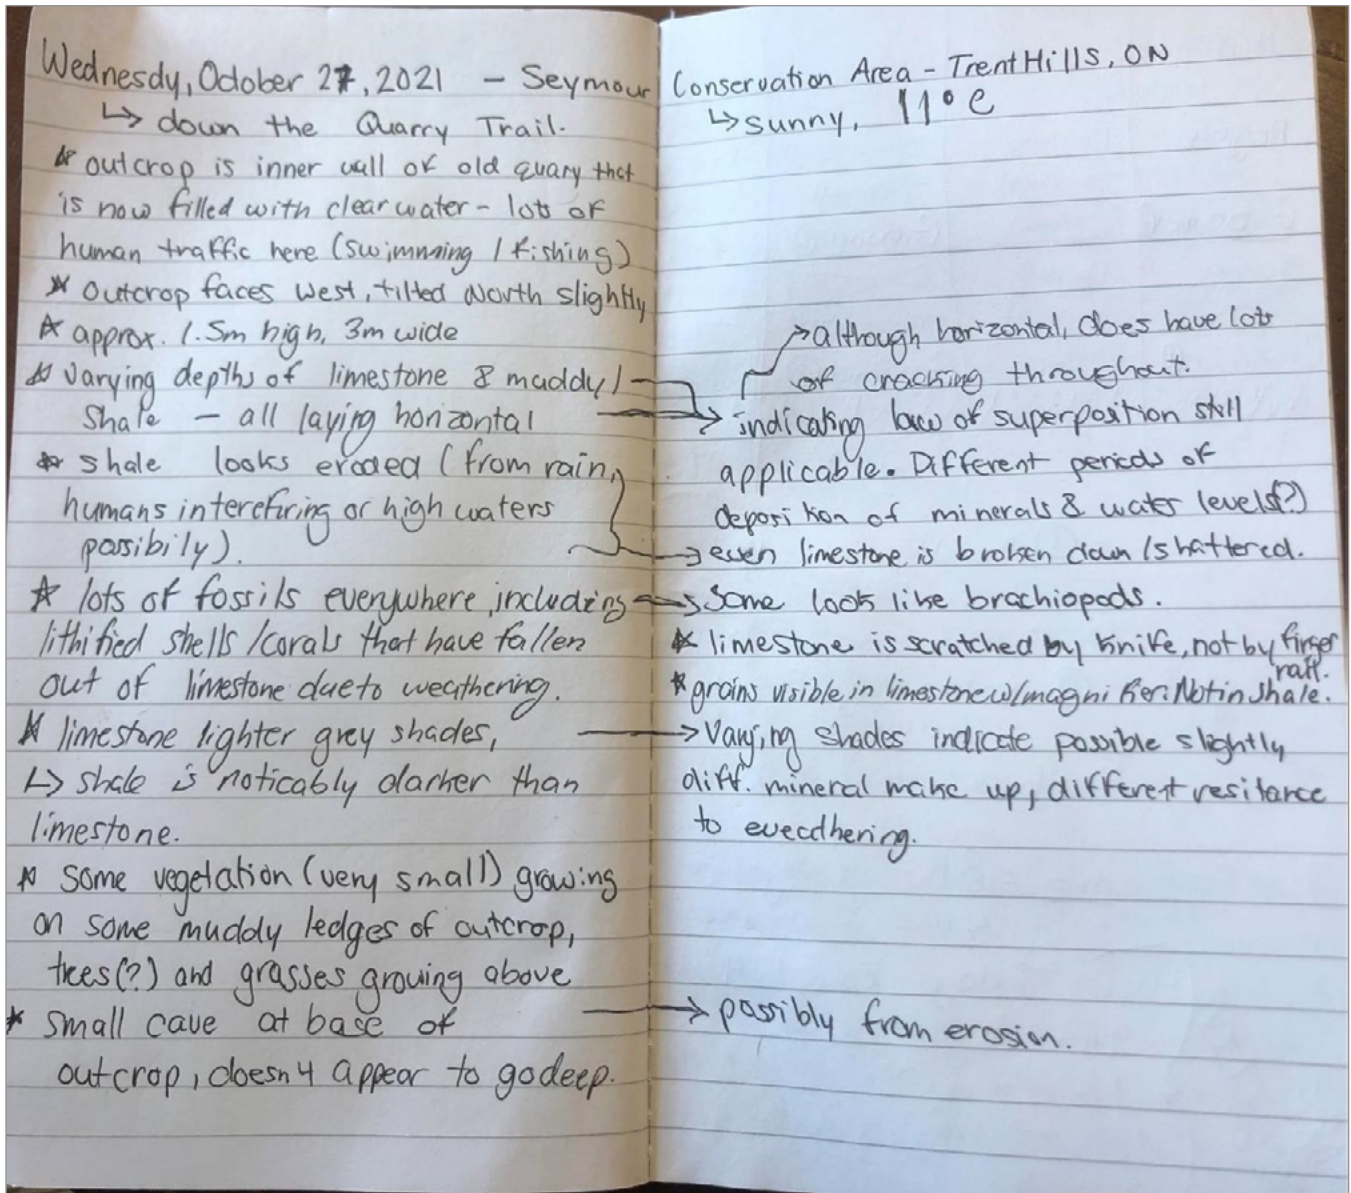 Wednesdy, October 27, 2021 - Seymour Conservation Area - Trent Hills, ON
↳ down the Quarry Trail.
* outcrop is inner wall of old quary that
is now filled with clear water - lots of
human traffic here (swimming / fishing)
* Outcrop faces West, tilted North slightly
* approx. 1.5m high, 3m wide
* Varying depths of limestone & muddy/
Shale - all laying horizontal
* shale looks eroded (from rain,
humans interefiring or high waters
possibily).
* lots of fossils everywhere, including
lithified shells /corals that have fallen
out of limestone due to weathering.
* limestone lighter grey shades,
↳ shale is noticably darker than
limestone.
* Some vegetation (very small) growing
on some muddy ledges of outcrop,
trees(?) and grasses growing above
* small cave at base of
outcrop, doesn't appear to go deep.
↳ sunny, 11°C
→ although horizontal, does have lots
of cracking throughout.
→ indicating law of superposition still
applicable. Different periods of
deposition of minerals & water levels(?)
→ even limestone is broken down /shattered.
→ Some look like brachiopods.
* limestone is scratched by knife, not by finger
nail.
* grains visible in limestone w/magnifier. Not in shale.
→ Varying shades indicate possible slightly
diff. mineral make up, different resitance
to weathering.
→ possibly from erosion.